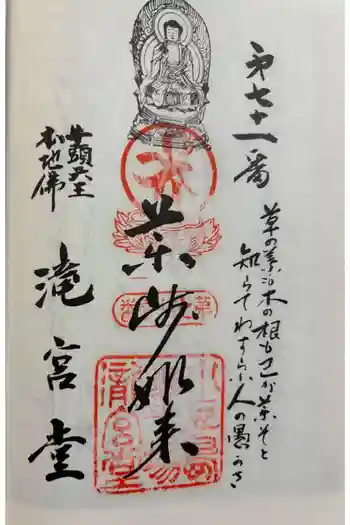 第七十一番
草の葉 木の根も己が薬ぞと
知らでわすらふ人の愚かさ
薬師如来
牛頭天王
本地佛
滝宮堂